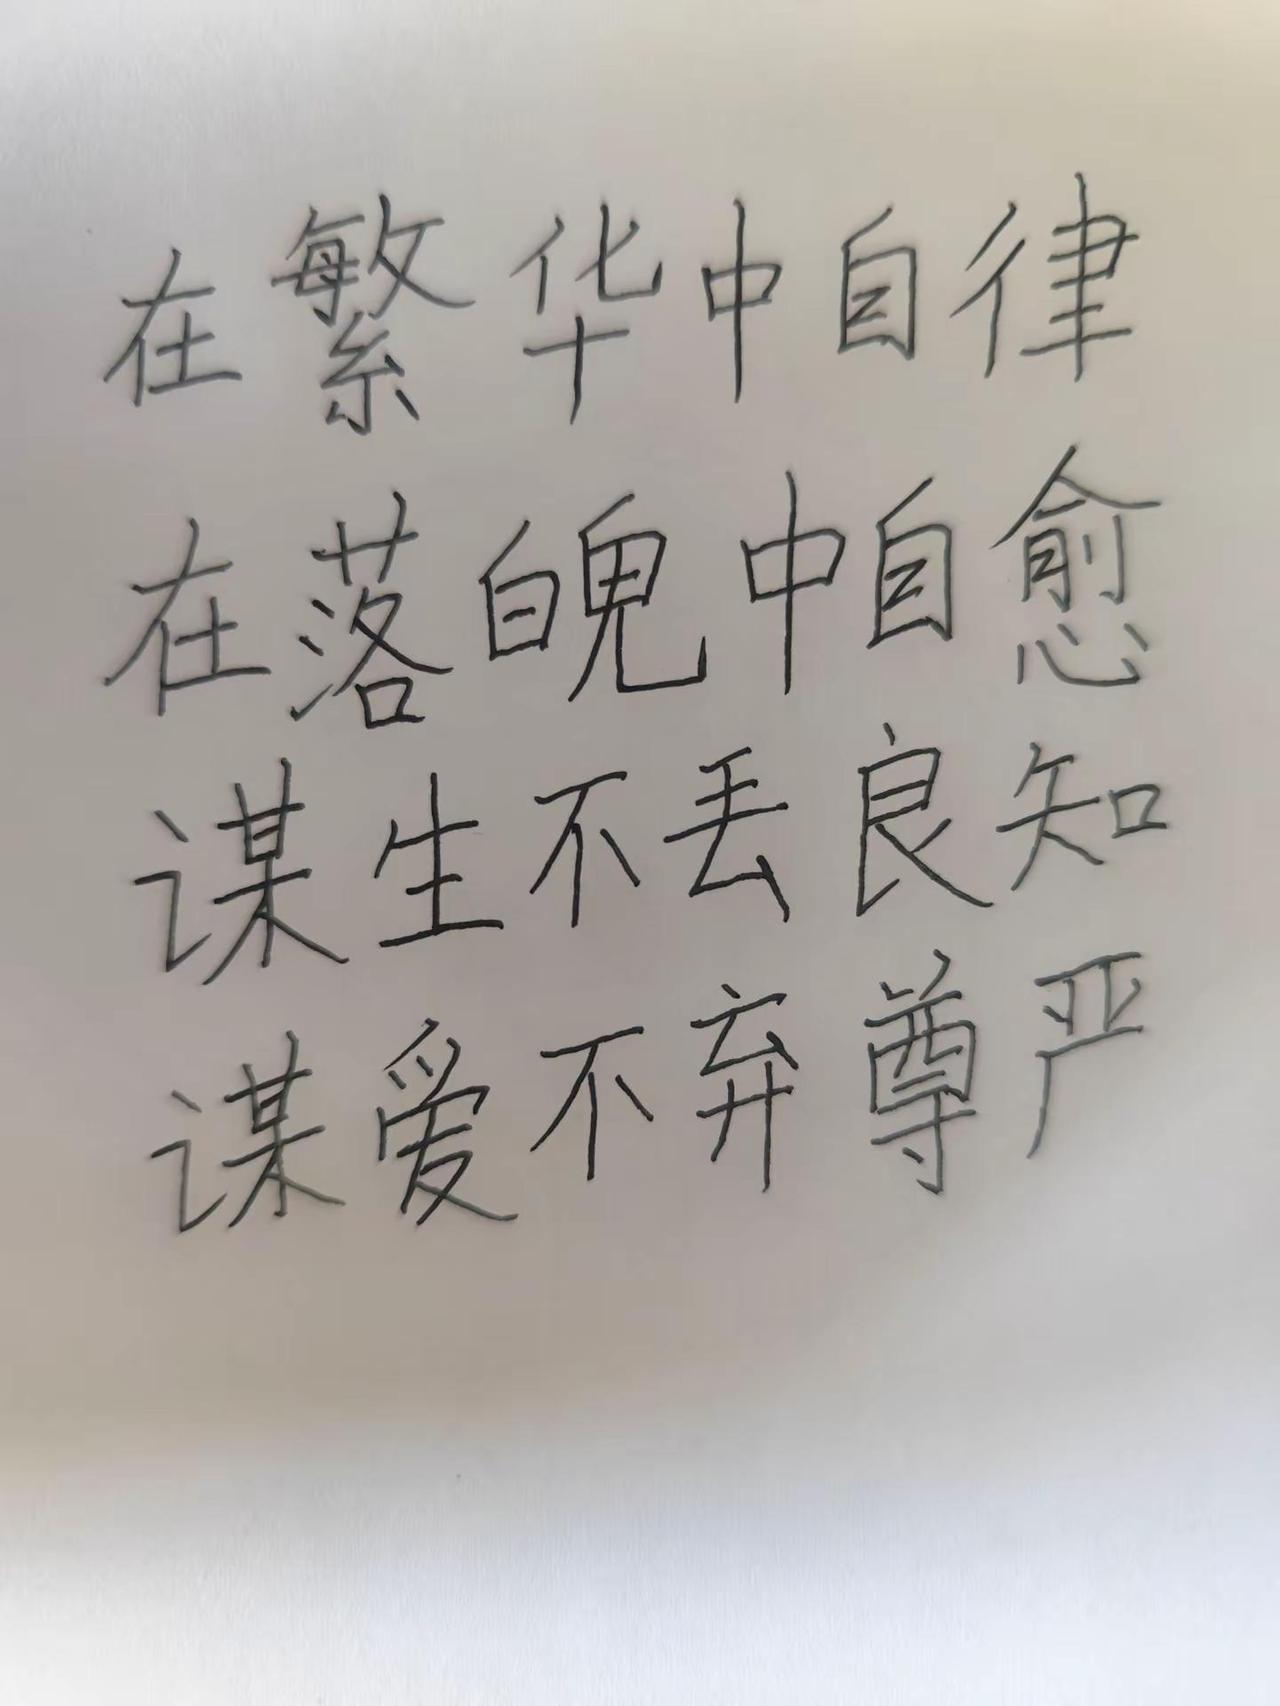 在繁华中自律
在落魄中自愈
谋生不丢良知
谋爱不弃尊严